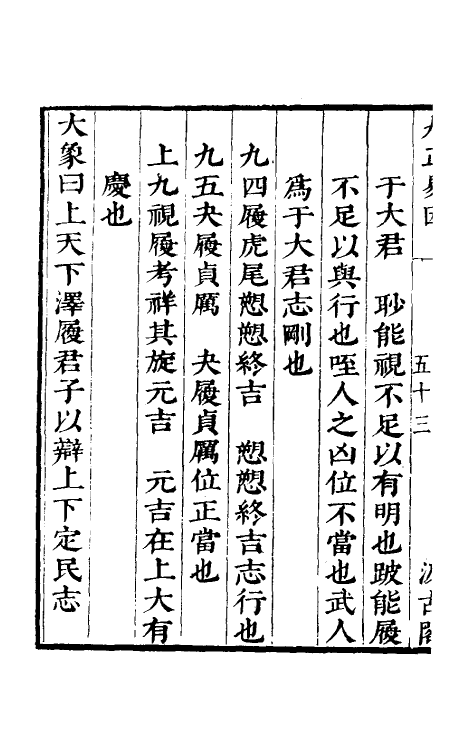 九正易因 一 五十三 汲古閣
于大君　眇能視不足以有明也跛能履
不足以與行也咥人之凶位不當也武人
爲于大君志剛也
九四履虎尾愬愬終吉　愬愬終吉志行也
九五夬履貞厲　夬履貞厲位正當也
上九視履考祥其旋元吉　元吉在上大有
慶也
大象曰上天下澤履君子以辯上下定民志